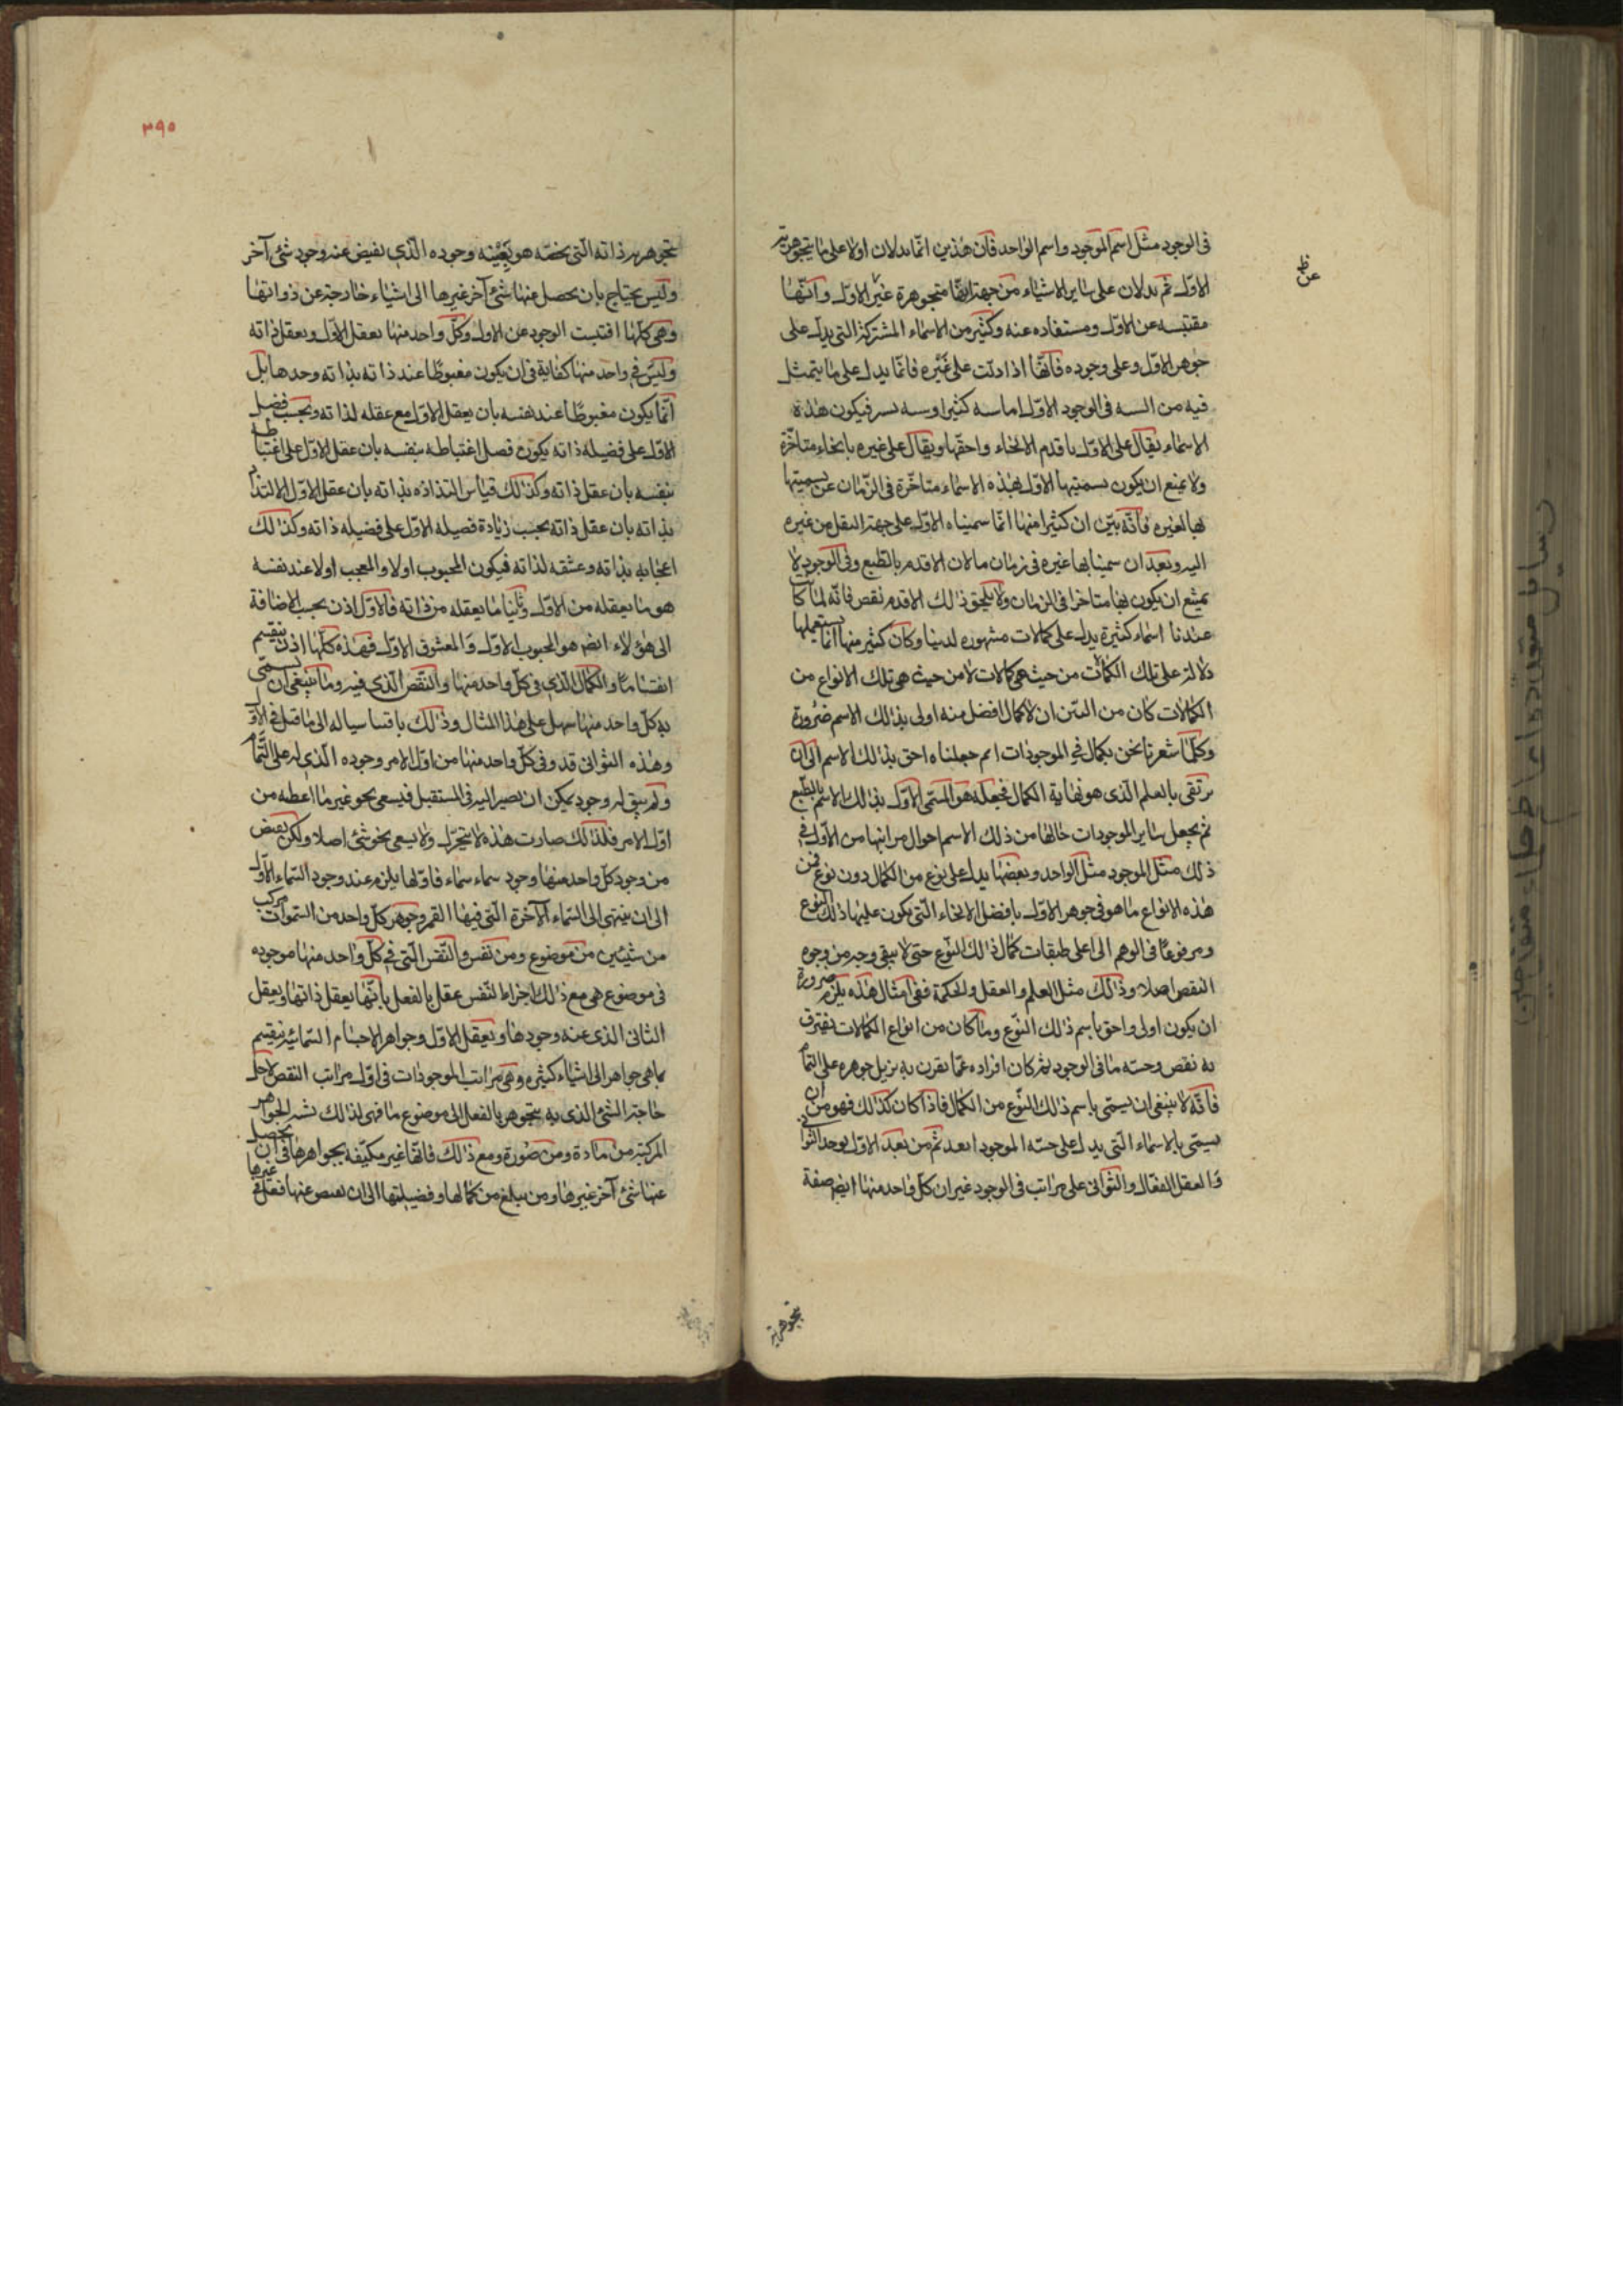 فى الوجود مثل اسم الموجود واسم الواحد فان هذين انما يدلان اولا على ما يتجوهر به
الاول ثم يدلان على ساير الاشياء من جهة انها متجوهرة عن الاول وانها
مقتبسه عن الاول ومستفاده عنه وكثير من الاسماء المشتركة التى يدل على
جوهر الاول وعلى وجوده فانها اذا دلت على غيره فانما يدل على ما يتمثل
فيه من السه فى الوجود الاول اما سه كثيرا وسه يسير فيكون هذه
الاسماء يقال على الاول باقدم الانحاء واحقها ويقال على غيره بانحاء متاخرة
ولا يمنع ان يكون تسميتها الاول بهذه الاسماء متاخرة فى الزمان عن تسميتها
بها لغيره فانه بين ان كثيرا منها انما سميناه الاول على جهة النقل من غيره
اليه وبعد ان سمينا بها غيره فى زمان ما لان الاقدم بالطبع وفى الوجود لا
يمتنع ان يكون بها متاخرا فى الزمان ولا يلحق ذلك الاقدم نقص فانه لما كا
عندنا اسماء كثيرة يدل على كمالات مشهوره لدينا وكان كثير منها انما يستعملها
دلالة على تلك الكمالات من حيث هى كمالات لا من حيث هى تلك الانواع من
الكمالات كان من البين ان لاكمال افضل منه اولى بذلك الاسم ضرورة
وكلما شعرنا نحن بكمال فى الموجودات اتم جعلناه احق بذلك الاسم الى ان
نرتقى بالعلم الذى هو نهاية الكمال فنجعله هو المسمى الاول بذلك الاسم بالطبع
ثم يجعل ساير الموجودات حالها من ذلك الاسم احوال مراتبها من الاول فى
ذلك مثل الموجود مثل الواحد وبعضها يدل على نوع من الكمال دون نوع فمن
هذه الانواع ما هو فى جوهر الاول بافضل الانحاء التى يكون عليها ذلك النوع
ومرفوعا فى الوهم الى اعلى طبقات كمال ذلك النوع حتى لا يبقى وجه من وجوه
النقص اصلا وذلك مثل العلم والعقل والحكمة ففى امثال هذه يلزم ضرورة
ان يكون اولى واحق باسم ذلك النوع وما كان من انواع الكمالات يقترن
به نقص وخسه ما فى الوجود ثم كان افراده عما يقرن به يزيل جوهره على التمام
فانه لا ينبغى ان يسمى باسم ذلك النوع من الكمال فاذا كان كذلك فهو من ان
يسمى بالاسماء التى يدل على خسه الموجود ابعد ثم من بعد الاول يوجد الثوانى
والعقل الفعال والثوانى على مراتب فى الوجود غير ان كل واحد منها ايضا صفة
عن
ظ
تجوهر به
٣٩٥
تجوهر به ذاته التى يخصه هو بعينه وجوده الذى يفيض عنه وجود شئ آخر
وليس يحتاج بان يحصل عنها شئ آخر غيرها الى اشياء خارجة عن ذواتها
وهى كلها اقتبست الوجود عن الاول وكل واحد منها يعقل الاول ويعقل ذاته
وليس فى واحد منها كفاية فى ان يكون مغبوطا عند ذاته بذاته وحدها بل
انما يكون مغبوطا عند نفسه بان يعقل الاول مع عقله لذاته وبحسب فضل
الاول على فضيله ذاته يكون فضل اغتباطه بنفسه بان عقل الاول على اغتباطه
بنفسه بان عقل ذاته وكذلك قياس التذاذه بذاته بان عقل الاول الى التذاذه
بذاته بان عقل ذاته بحسب زيادة فضيله الاول على فضيله ذاته وكذلك
اعجابه بذاته وعشقه لذاته فيكون المحبوب اولا والمعجب اولا عند نفسه
هو ما يعقله من الاول وثانيا ما يعقله من ذاته فالاول اذن بحسب الاضافة
الى هؤلاء ايضا هو المحبوب الاول والمعشوق الاول فهذه كلها اذن ينقسم
انقساما ما والكمال الذى فى كل واحد منها والنقص الذى فيه وما ينبغى ان يسمى
به كل واحد منها سهل على هذا المثال وذلك باقتباسنا له الى ما قيل فى الاول
وهذه الثوانى قد وفى كل واحد منها من اول الامر وجوده الذى له على التمام
ولم يبق له وجود يمكن ان يصير اليه فى المستقبل فيسعى نحو غير ما اعطه من
اول الامر فلذلك صارت هذه لا يتحرك ولا يسعى نحو شئ اصلا ولكن يفيض
من وجود كل واحد منها وجود سماء سماء فاولها يلزم عند وجود السماء الاول
الى ان ينتهى الى السماء الآخرة التى فيها القمر وجوهر كل واحد من السموات مركب
من شيئين من موضوع ومن نفس والنفس التى فى كل واحد منها موجوده
فى موضوع هى مع ذلك اجزاء النفس عقل بالفعل بانها يعقل ذاتها ويعقل
الثانى الذى عنه وجودها ويعقل الاول وجواهر الاجسام السمائيه ينقسم
بما هى جواهر الى اشياء كثيره وهى مراتب الموجودات فى اول مراتب النقص لاجل
حاجة الشئ الذى به يتجوهر بالفعل الى موضوع ما فهى لذلك تشبه الجواهر
المركبة من مادة ومن صورة ومع ذلك فانها غير مكتفيه بجواهرها فى ان يحصل
عنها شئ آخر غيرها ومن يبلغ من كمالها وفضيلتها الى ان يفيض عنها فعل فى غيرها